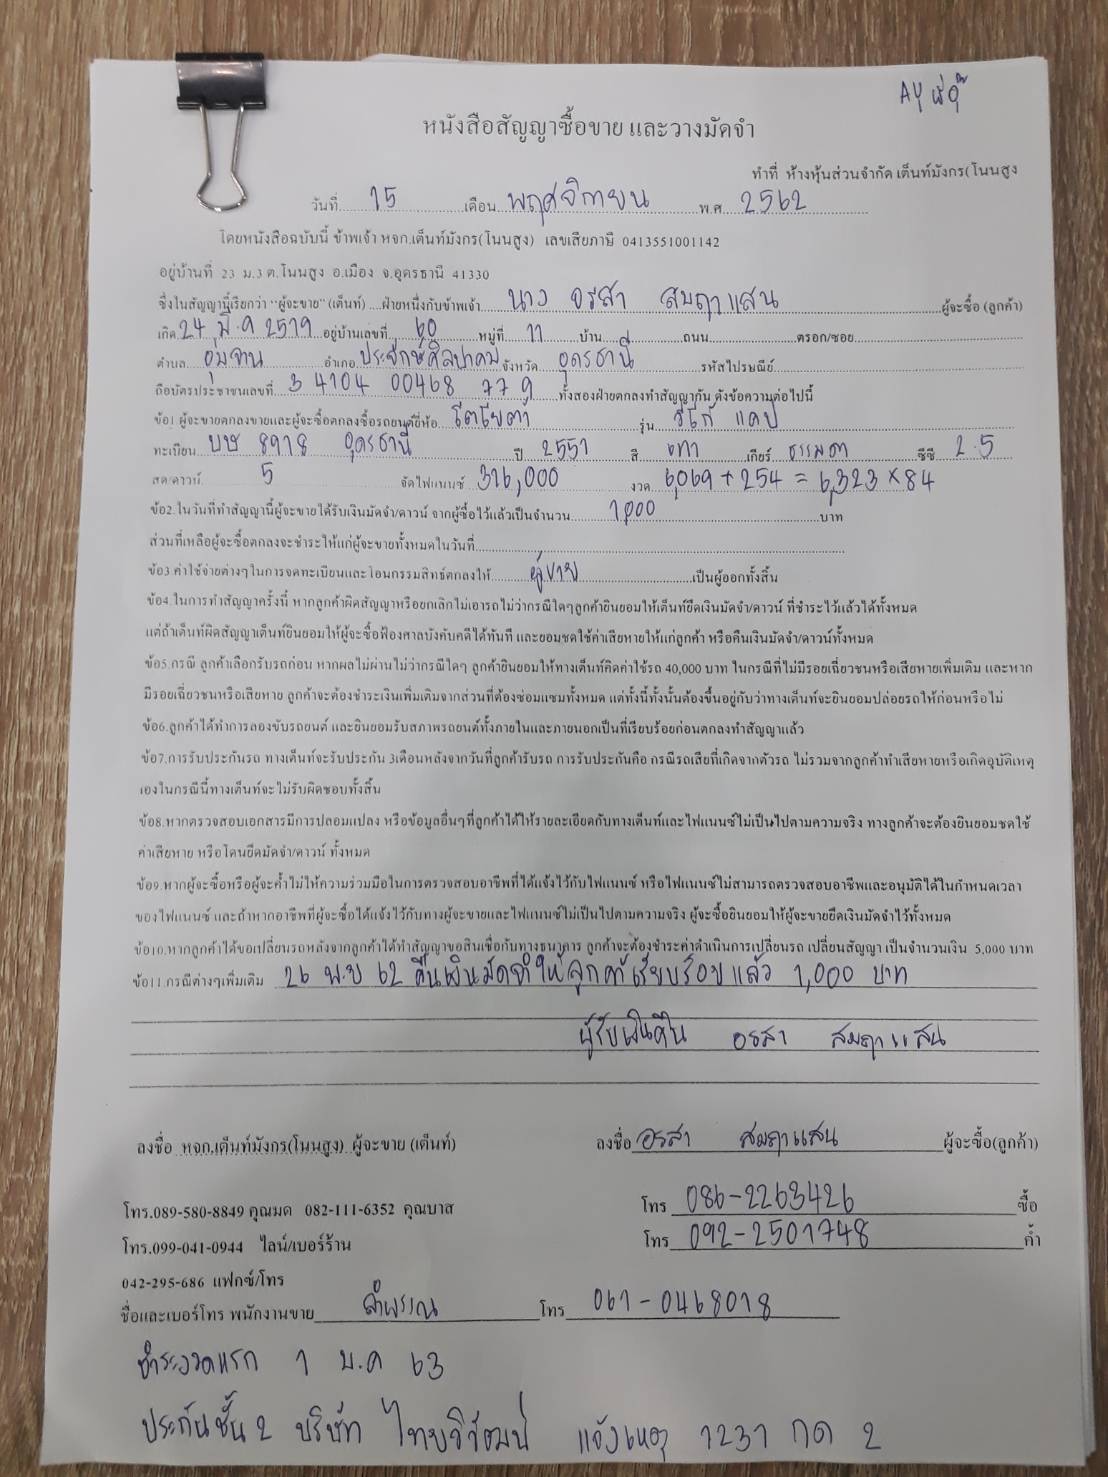 AY
หนังสือสัญญาซื้อขาย และวางมัดจำ
ทำที่ ห้างหุ้นส่วนจำกัด เต็นท์มังกร(โนนสูง
วันที่ 15 เดือน พฤศจิกายน พ.ศ. 2562
โดยหนังสือฉบับนี้ ข้าพเจ้า หจก.เต็นท์มังกร(โนนสูง) เลขเสียภาษี 0413551001142
อยู่บ้านที่ 23 ม.3 ต.โนนสูง อ.เมือง จ.อุดรธานี 41330
ซึ่งในสัญญานี้เรียกว่า "ผู้จะขาย" (เต็นท์) ....ฝ่ายหนึ่งกับข้าพเจ้า นาง อรสา สมฤาแสน ผู้จะซื้อ (ลูกค้า)
เกิด 24 มี.ค 2519 อยู่บ้านเลขที่ 60 หมู่ที่ 11 บ้าน ถนน ตรอก/ซอย
ตำบล อุ่มจาน อำเภอ ประจักษ์ศิลปาคม จังหวัด อุดรธานี รหัสไปรษณีย์
ถือบัตรประชาชนเลขที่ 3 4104 00468 77 9 ทั้งสองฝ่ายตกลงทำสัญญากัน ดังข้อความต่อไปนี้
ข้อ1 ผู้จะขายตกลงขายและผู้จะซื้อตกลงซื้อรถยนต์ยี่ห้อ โตโยต้า รุ่น วีโก้ แคป
ทะเบียน บษ 8918 อุดรธานี ปี 2551 สี เทา เกียร์ ธรรมดา ซีซี 2.5
สด/ดาวน์ 5 จัดไฟแนนซ์ 316,000 งวด 6,069 + 254 = 6,323 × 84
ข้อ2.ในวันที่ทำสัญญานี้ผู้จะขายได้รับเงินมัดจำ/ดาวน์ จากผู้ซื้อไว้แล้วเป็นจำนวน 1,000 บาท
ส่วนที่เหลือผู้จะซื้อตกลงจะชำระให้แก่ผู้จะขายทั้งหมดในวันที่
ข้อ3 ค่าใช้จ่ายต่างๆในการจดทะเบียนและโอนกรรมสิทธิ์ตกลงให้ ผู้ขาย เป็นผู้ออกทั้งสิ้น
ข้อ4.ในการทำสัญญาครั้งนี้ หากลูกค้าผิดสัญญาหรือยกเลิกไม่เอารถไม่ว่ากรณีใดๆลูกค้ายินยอมให้เต็นท์ยึดเงินมัดจำ/ดาวน์ ที่ชำระไว้แล้วได้ทั้งหมด
แต่ถ้าเต็นท์ผิดสัญญาเต็นท์ยินยอมให้ผู้จะซื้อฟ้องศาลบังคับคดีได้ทันที และยอมชดใช้ค่าเสียหายให้แก่ลูกค้า หรือคืนเงินมัดจำ/ดาวน์ทั้งหมด
ข้อ5.กรณี ลูกค้าเลือกรับรถก่อน หากผลไม่ผ่านไม่ว่ากรณีใดๆ ลูกค้ายินยอมให้ทางเต็นท์คิดค่าใช้รถ 40,000 บาท ในกรณีที่ไม่มีรอยเฉี่ยวชนหรือเสียหายเพิ่มเติม และหาก
มีรอยเฉี่ยวชนหรือเสียหาย ลูกค้าจะต้องชำระเงินเพิ่มเติมจากส่วนที่ต้องซ่อมแซมทั้งหมด แต่ทั้งนี้ทั้งนั้นต้องขึ้นอยู่กับว่าทางเต็นท์จะยินยอมปล่อยรถให้ก่อนหรือไม่
ข้อ6.ลูกค้าได้ทำการลองขับรถยนต์ และยินยอมรับสภาพรถยนต์ทั้งภายในและภายนอกเป็นที่เรียบร้อยก่อนตกลงทำสัญญาแล้ว
ข้อ7.การรับประกันรถ ทางเต็นท์จะรับประกัน 3เดือนหลังจากวันที่ลูกค้ารับรถ การรับประกันคือ กรณีรถเสียที่เกิดจากตัวรถ ไม่รวมจากลูกค้าทำเสียหายหรือเกิดอุบัติเหตุ
เองในกรณีนี้ทางเต็นท์จะไม่รับผิดชอบทั้งสิ้น
ข้อ8.หากตรวจสอบเอกสารมีการปลอมแปลง หรือข้อมูลอื่นๆที่ลูกค้าได้ให้รายละเอียดกับทางเต็นท์และไฟแนนซ์ไม่เป็นไปตามความจริง ทางลูกค้าจะต้องยินยอมชดใช้
ค่าเสียหาย หรือโดนยึดมัดจำ/ดาวน์ ทั้งหมด
ข้อ9.หากผู้จะซื้อหรือผู้จะค้ำไม่ให้ความร่วมมือในการตรวจสอบอาชีพที่ได้แจ้งไว้กับไฟแนนซ์ หรือไฟแนนซ์ไม่สามารถตรวจสอบอาชีพและอนุมัติได้ในกำหนดเวลา
ของไฟแนนซ์ และถ้าหากอาชีพที่ผู้จะซื้อได้แจ้งไว้กับทางผู้จะขายและไฟแนนซ์ไม่เป็นไปตามความจริง ผู้จะซื้อยินยอมให้ผู้จะขายยึดเงินมัดจำไว้ทั้งหมด
ข้อ10.หากลูกค้าได้ขอเปลี่ยนรถหลังจากลูกค้าได้ทำสัญญาขอสินเชื่อกับทางธนาคาร ลูกค้าจะต้องชำระค่าดำเนินการเปลี่ยนรถ เปลี่ยนสัญญา เป็นจำนวนเงิน 5,000 บาท
ข้อ11.กรณีต่างๆเพิ่มเติม 26 พ.ย 62 คืนเงินมัดจำให้ลูกค้าเรียบร้อยแล้ว 1,000 บาท
ผู้รับเงินคืน อรสา สมฤาแสน
ลงชื่อ หจก.เต็นท์มังกร(โนนสูง) ผู้จะขาย (เต็นท์) ลงชื่อ อรสา สมฤาแสน ผู้จะซื้อ(ลูกค้า)
โทร.089-580-8849 คุณมด 082-111-6352 คุณบาส โทร 086-2263426 ซื้อ
โทร.099-041-0944 ไลน์/เบอร์ร้าน โทร 092-2501748 ค้ำ
042-295-686 แฟกซ์/โทร
ชื่อและเบอร์โทร พนักงานขาย ลำพรรณ โทร 061-0468018
ชำระงวดแรก 1 ม.ค 63
ประกันชั้น 2 บริษัท ไทยวิวัฒน์ แจ้งเหตุ 1231 กด 2